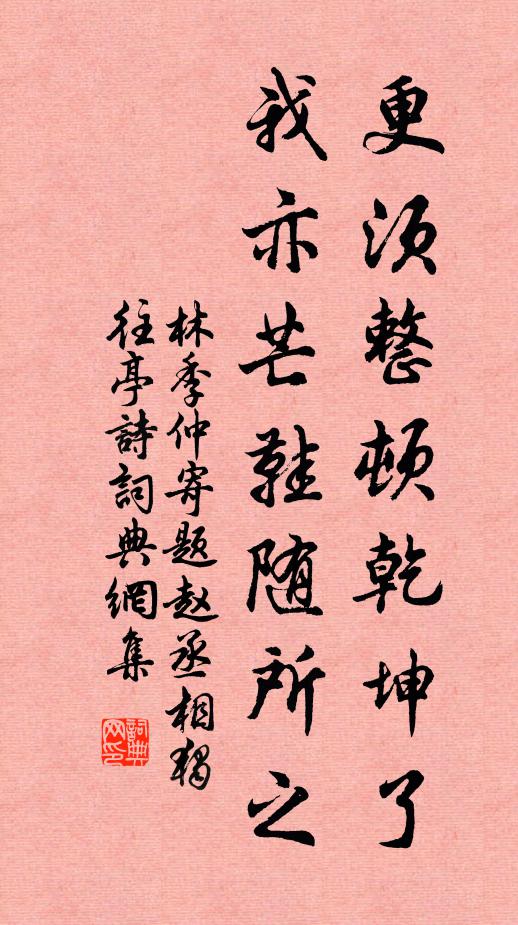 更须整顿乾坤了
我亦芒鞋随所之
林季仲寄题赵丞相独
往亭詩詞典網集
詞典
网印